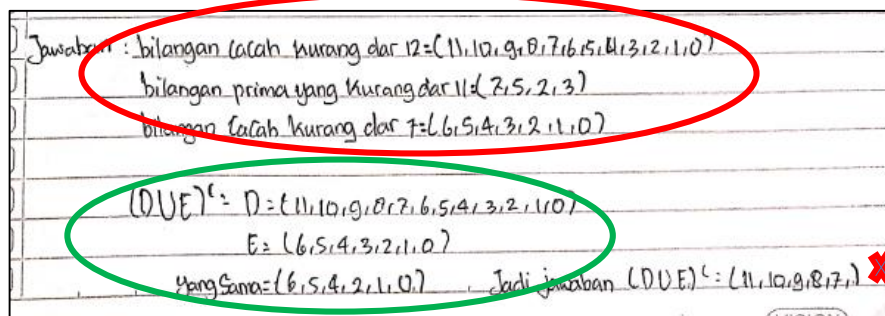 Jawaban : bilangan cacah kurang dar 12=(11,10,9,8,7,6,5,4,3,2,1,0)
bilangan prima yang kurang dar 11=(7,5,2,3)
bilangan cacah kurang dar 7=(6,5,4,3,2,1,0)
(DUE)ᶜ= D=(11,10,9,8,7,6,5,4,3,2,1,0)
E= (6,5,4,3,2,1,0)
yang Sama=(6,5,4,2,1,0) Jadi jawaban (DUE)ᶜ=(11,10,9,8,7,)